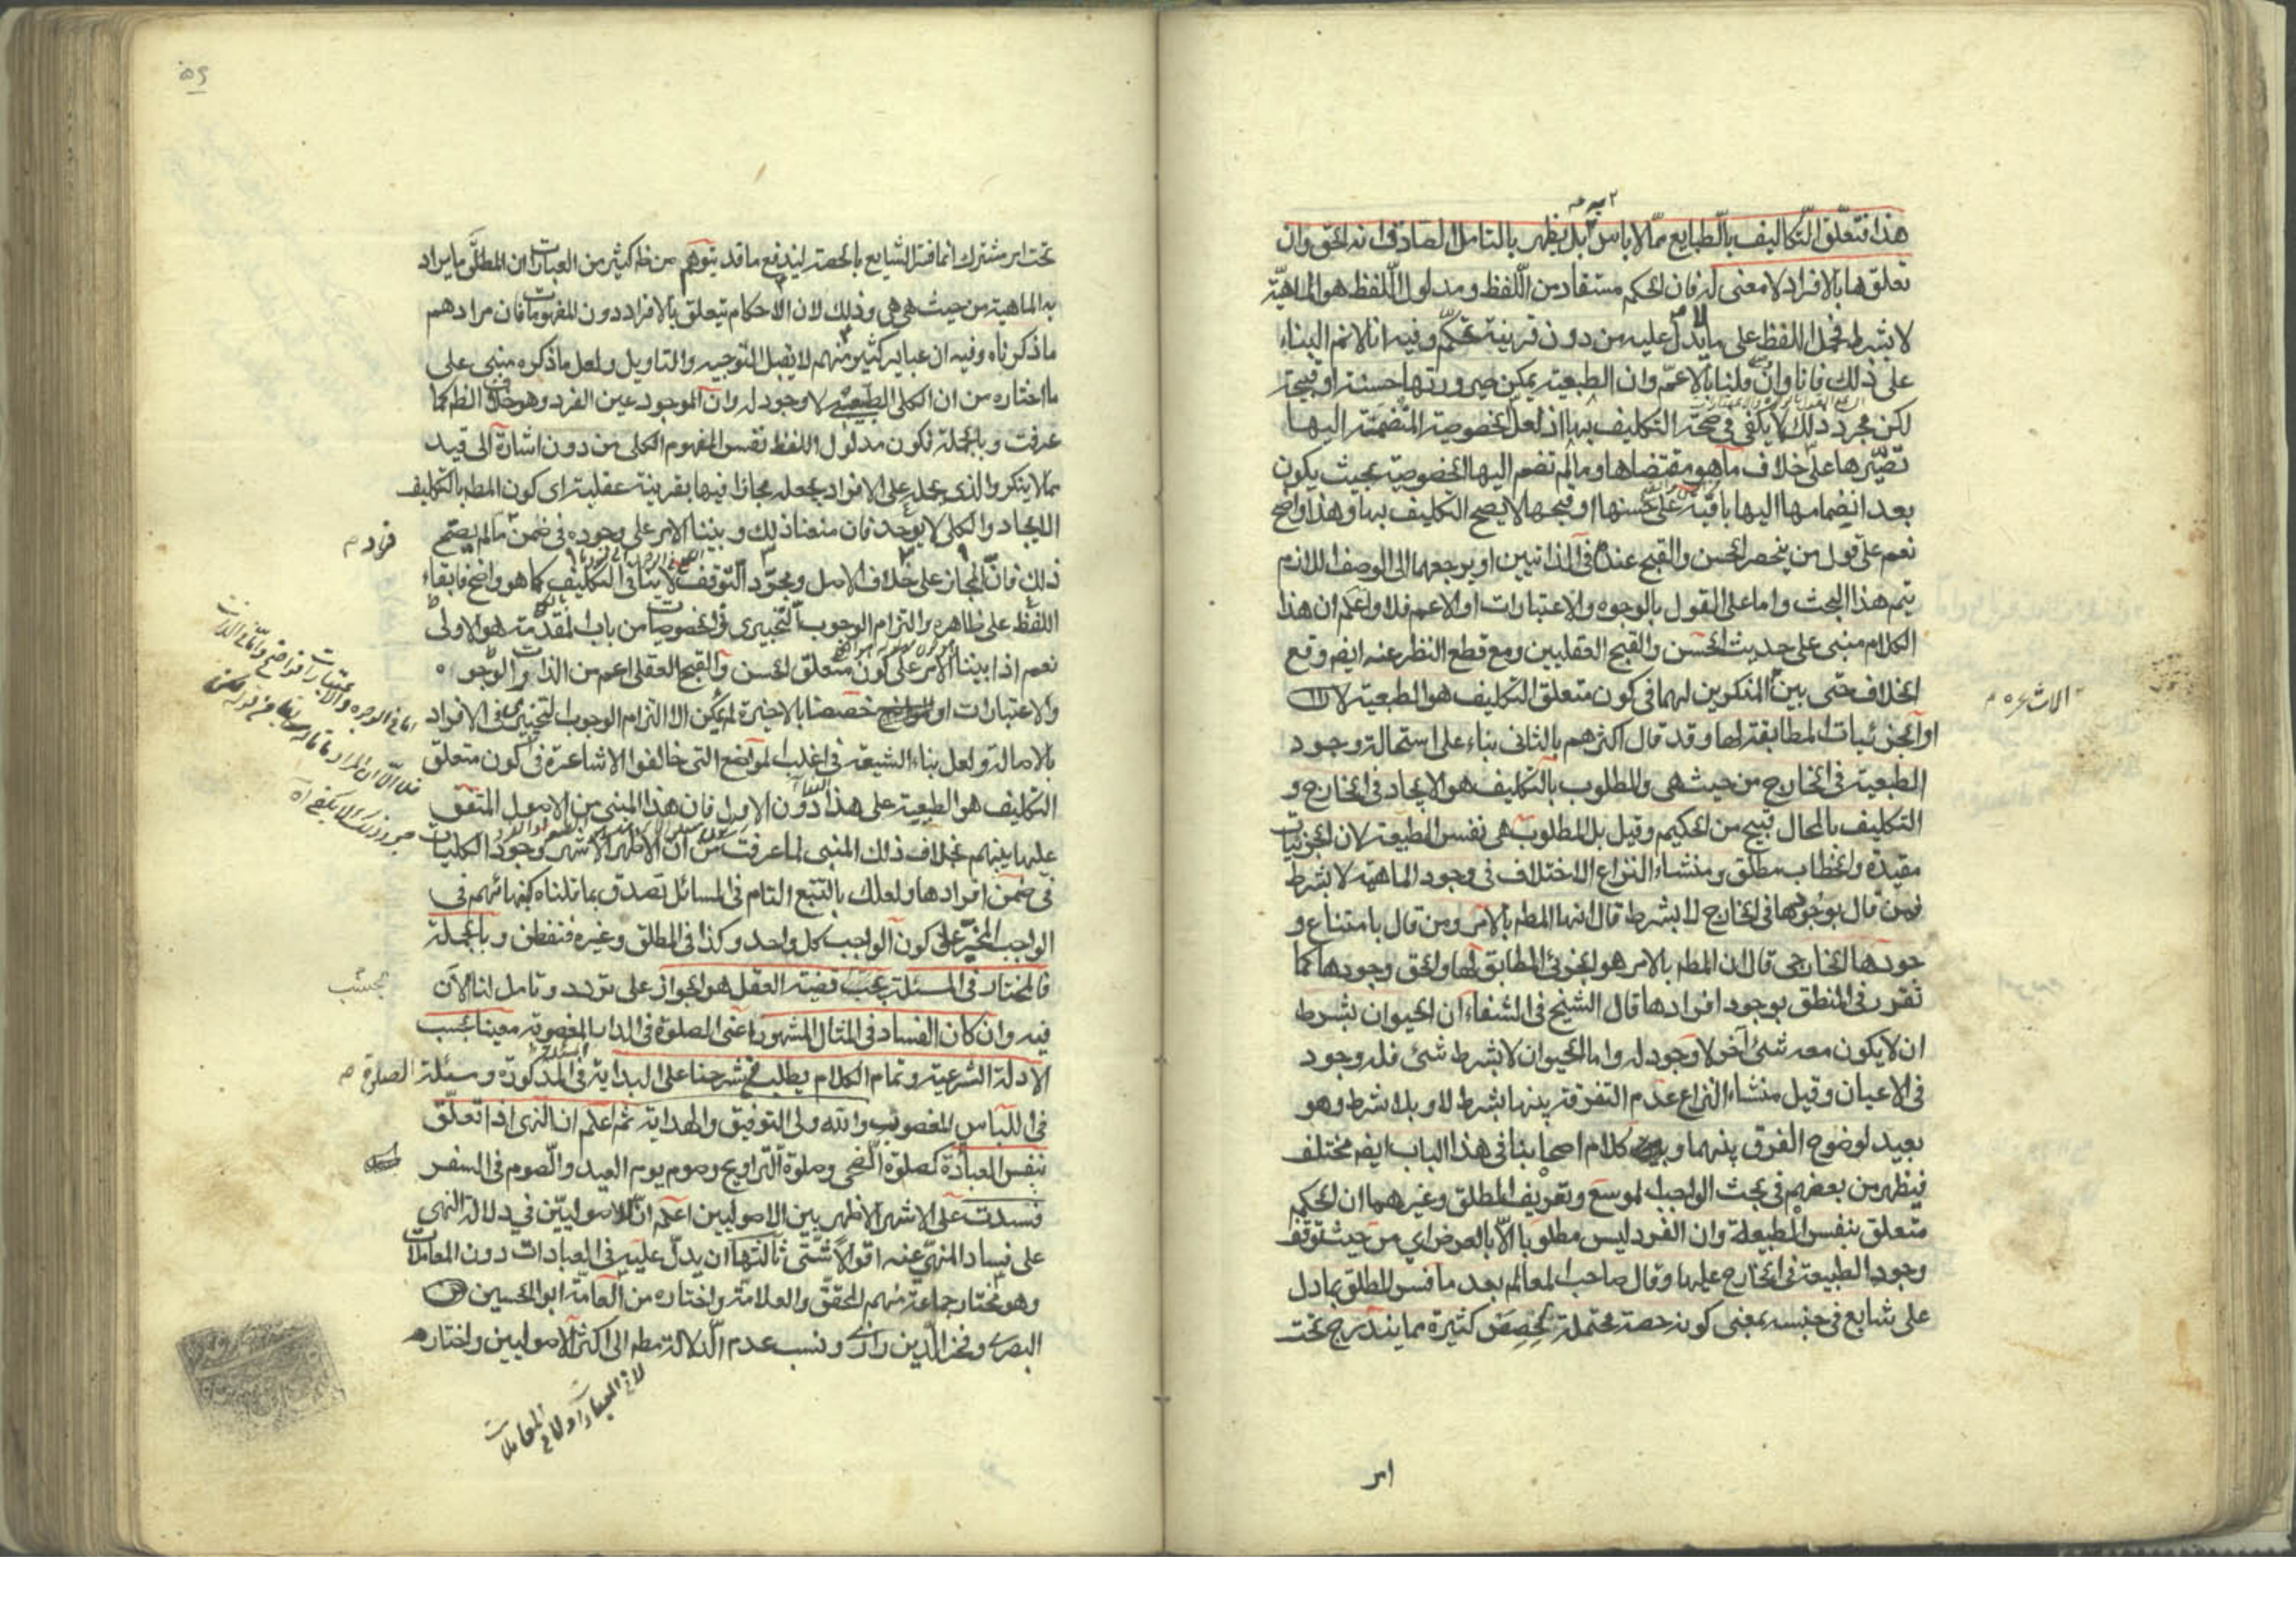 هذا فتعلّق التكاليف بالطبايع ممّا لا باس به بل يظهر بالتامل الصادق انه الحق وان
تعلقها بالافراد لا معنى له فان الحكم مستفاد من اللفظ ومدلول اللفظ هو الماهية
لا بشرط فحمل اللفظ على ما لا يدل عليه من دون قرينة تحكم وفيه انا لا نتم البناء
على ذلك فانا وان قلنا بالاعم وان الطبيعة يمكن صيرورتها حسنة او قبيحة
لكن مجرد ذلك لا يكفي في صحة التكليف بها اذ لعل الخصوصية المنضمة اليها
تصيّرها على خلاف ما هو مقتضاها وما لم تضم اليها الخصوصية بحيث يكون
بعد انضمامها اليها باقية على حسنها او قبحها لا يصح التكليف بها وهذا واضح
نعم على قول من ينحصر الحسن والقبح عنده في الذاتيين او يرجعهما الى الوصف اللازم
يتم هذا البحث واما على القول بالوجوه والاعتبارات او الاعم فلا واعلم ان هذا
الكلام مبنى على حديث الحسن والقبح العقليين ومع قطع النظر عنه ايضم وقع
الخلاف حتى بين المنكرين لهما في كون متعلق التكليف هو الطبيعة لا
او الجزئيات المطابقة لها وقد قال اكثرهم بالثاني بناء على استحالة وجود
الطبيعة في الخارج من حيث هي والمطلوب بالتكليف هو الايجاد في الخارج و
التكليف بالمحال قبيح من الحكيم وقيل بل المطلوب هي نفس الطبيعة لان الجزئيات
مقيدة والخطاب مطلق ومنشاء النزاع الاختلاف في وجود الماهية لا بشرط
فمن قال بوجودها في الخارج لا بشرط قال انها المطم بالامر ومن قال بامتناع و
جودها الخارجي قال ان المطم بالامر هو الجزئي المطابق لها والحق وجودها كما
تقرر في المنطق بوجود افرادها قال الشيخ في الشفاء ان الحيوان بشرط
ان لا يكون معه شئ آخر لا وجود له واما الحيوان لا بشرط شئ فله وجود
في الاعيان وقيل منشاء النزاع عدم التفرقة بينها بشرط لا وبلا شرط وهو
بعيد لوضوح الفرق بينهما و كلام اصحابنا في هذا الباب ايضم مختلف
فيظهر من بعضهم في بحث الواجب الموسع وتعريف المطلق وغيرهما ان الحكم
متعلق بنفس الطبيعة وان الفرد ليس مطلوبا الّا بالعرض اي من حيث توقف
وجود الطبيعة في الخارج عليها وقال صاحب المعالم بعد ما فسر المطلق بما دل
على شايع في جنسه بمعنى كونه حصة محتملة لحصص كثيرة مما يندرج تحت
امر
تحت امر مشترك انما فسر الشايع بالحصة ليندفع ما قد يتوهم من ظم كثير من العبارات ان المطلق ما يراد
به الماهية من حيث هي هي وذلك لان الاحكام يتعلق بالافراد دون المفهومات فان مرادهم
ما ذكرناه وفيه ان عباير كثير منهم لا يقبل التوجيه والتاويل ولعل ما ذكره مبني على
ما اختاره من ان الكلي الطبيعي لا وجود له وان الموجود عين الفرد وهو خلاف الظم كما
عرفت وبالجملة لكون مدلول اللفظ نفس المفهوم الكلي من دون اشارة الى قيد
مما لا ينكر والذي يحمله على الافراد يجعله مجازا فيها بقرينة عقلية اى كون المطم بالتكليف
الايجاد والكلي لا يوجد فان منعنا ذلك وبنينا الامر على وجوده في ضمن ما لم يصح
ذلك فان المجاز على خلاف الاصل ومجرّد التوقف لا ينافي التكليف كما هو واضح فابقاء
اللفظ على ظاهره والتزام الوجوب التخييري في الخصوصيات من باب المقدمة هو الاولى
نعم اذا بنينا الامر على كون متعلق الحسن والقبح العقلي اعم من الذات والوجوه
والاعتبارات او خصصنا بالاخيرة لم يمكن الا التزام الوجوب التخييري في الافراد
بالاصالة ولعل بناء الشيعة في اغلب المواضع التي خالفوا الاشاعرة في كون متعلق
التكليف هو الطبيعة على هذا دون الاول فان هذا المبني من الاصول المتفق
عليها بينهم بخلاف ذلك المبني لما عرفت من ان الاظهر الاشهر وجود الكليات
في ضمن افرادها ولعلك بالتتبع والتام في المسائل تصدق بما تلناه كفهائهم في
الواجب المخيّر على كون الواجب كل واحد وكذا في المطلق وغيره فتفطن وبالجملة
فالمختار في المسئلة بحب قضية العقل هو الجواز على تردد وتامل لنا الآن
فيه وان كان الفساد في المثال المشهور اعنى الصلوة في الدار المغصوبة معينا بحسب
الادلة الشرعية وتمام الكلام يطلب في شرحنا على البداية في المسئلة المذكورة ومسئلة الصلوة
في اللباس المغصوب والله ولى التوفيق والهداية ثم اعلم ان النهي اذا تعلّق
بنفس العبادة كصلوة الضحى وصلوة التراويح وصوم يوم العيد والصوم في السفر
فسدت على الاشهر الاظهر بين الاصوليين اعلم ان للاصوليّين في دلالة النهي
على فساد المنهيّ عنه اقوالًا شتّى ثالثها ان يدلّ عليه في العبادات دون المعاملات
وهو مختار جماعة منهم المحقق والعلامة واختاره من العامّة ابو الحسين
البصرى وفخر الدين رازى ونسب عدم الدلالة مطم الى اكثر الاصوليين واختاره
لا في العبادات ولا في المعاملات